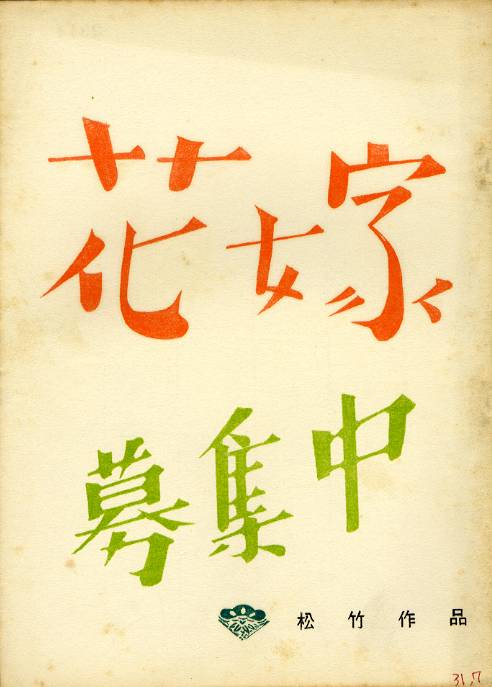 花嫁
募集中
松竹作品
31.7